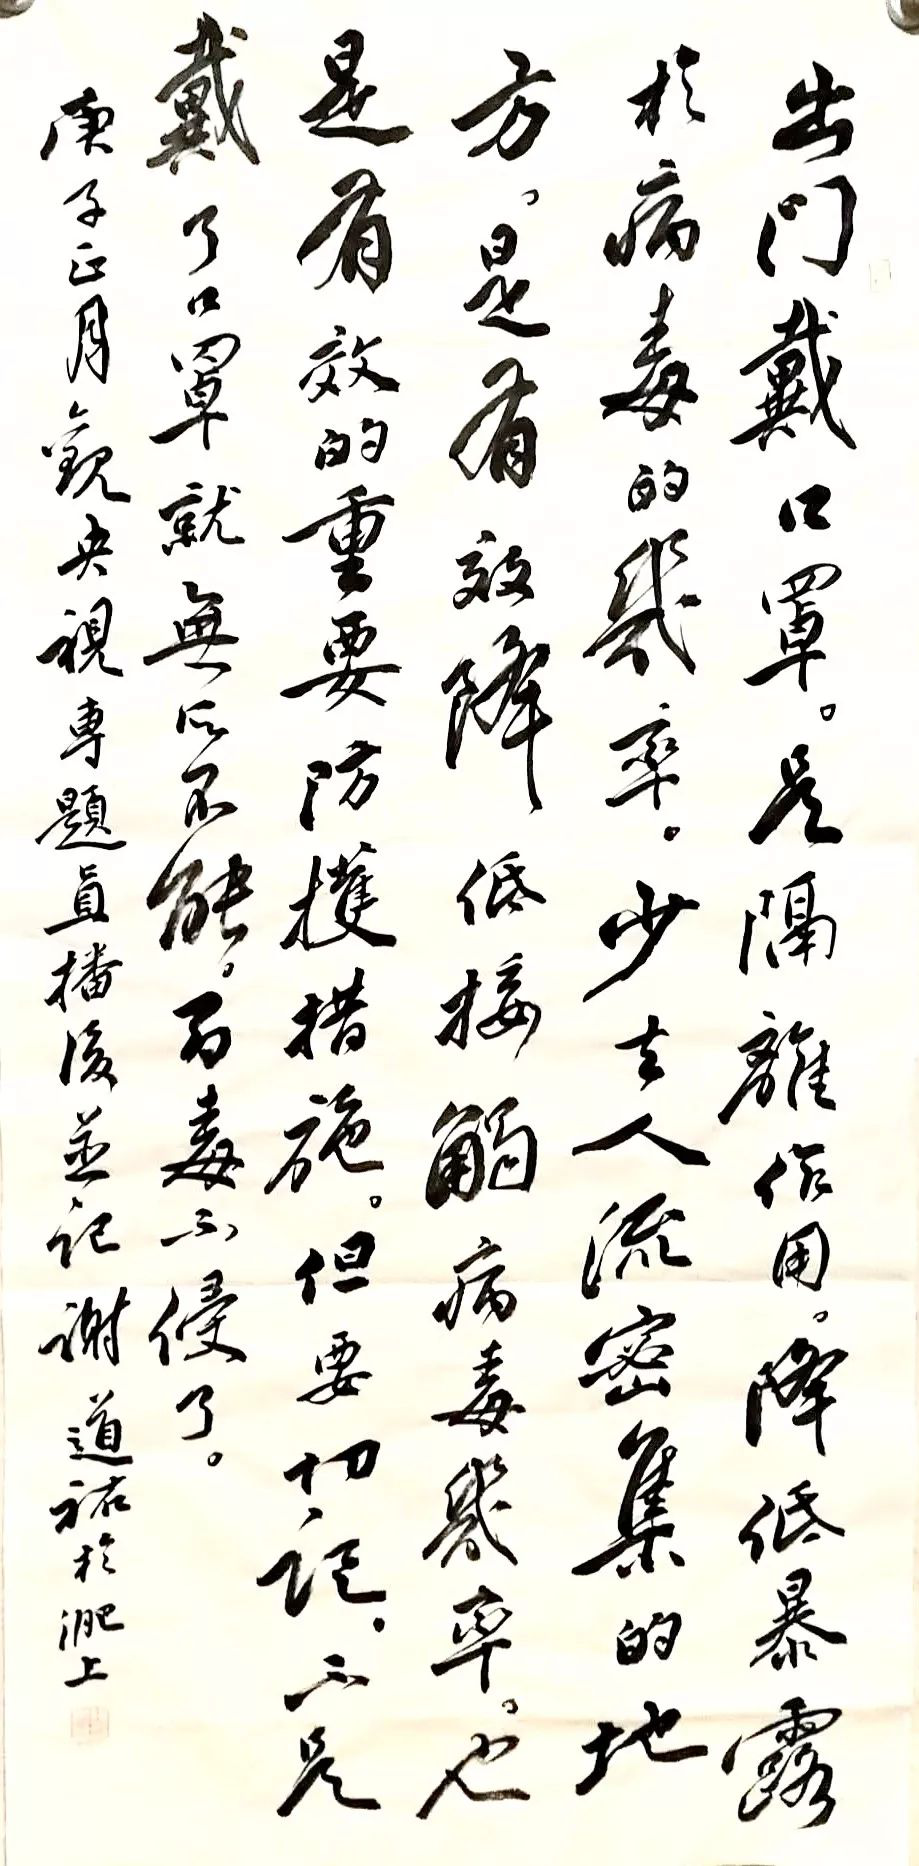 出門戴口罩。是隔離作用。降低暴露
於病毒的幾率。少去人流密集的地
方。是有效降低接觸病毒幾率。也
是有效的重要防擭措施。但要切記。不是
戴了口罩就無所不能。而毒不侵了。
庚子正月觀央視專題直播後並記謝道祐於淝上